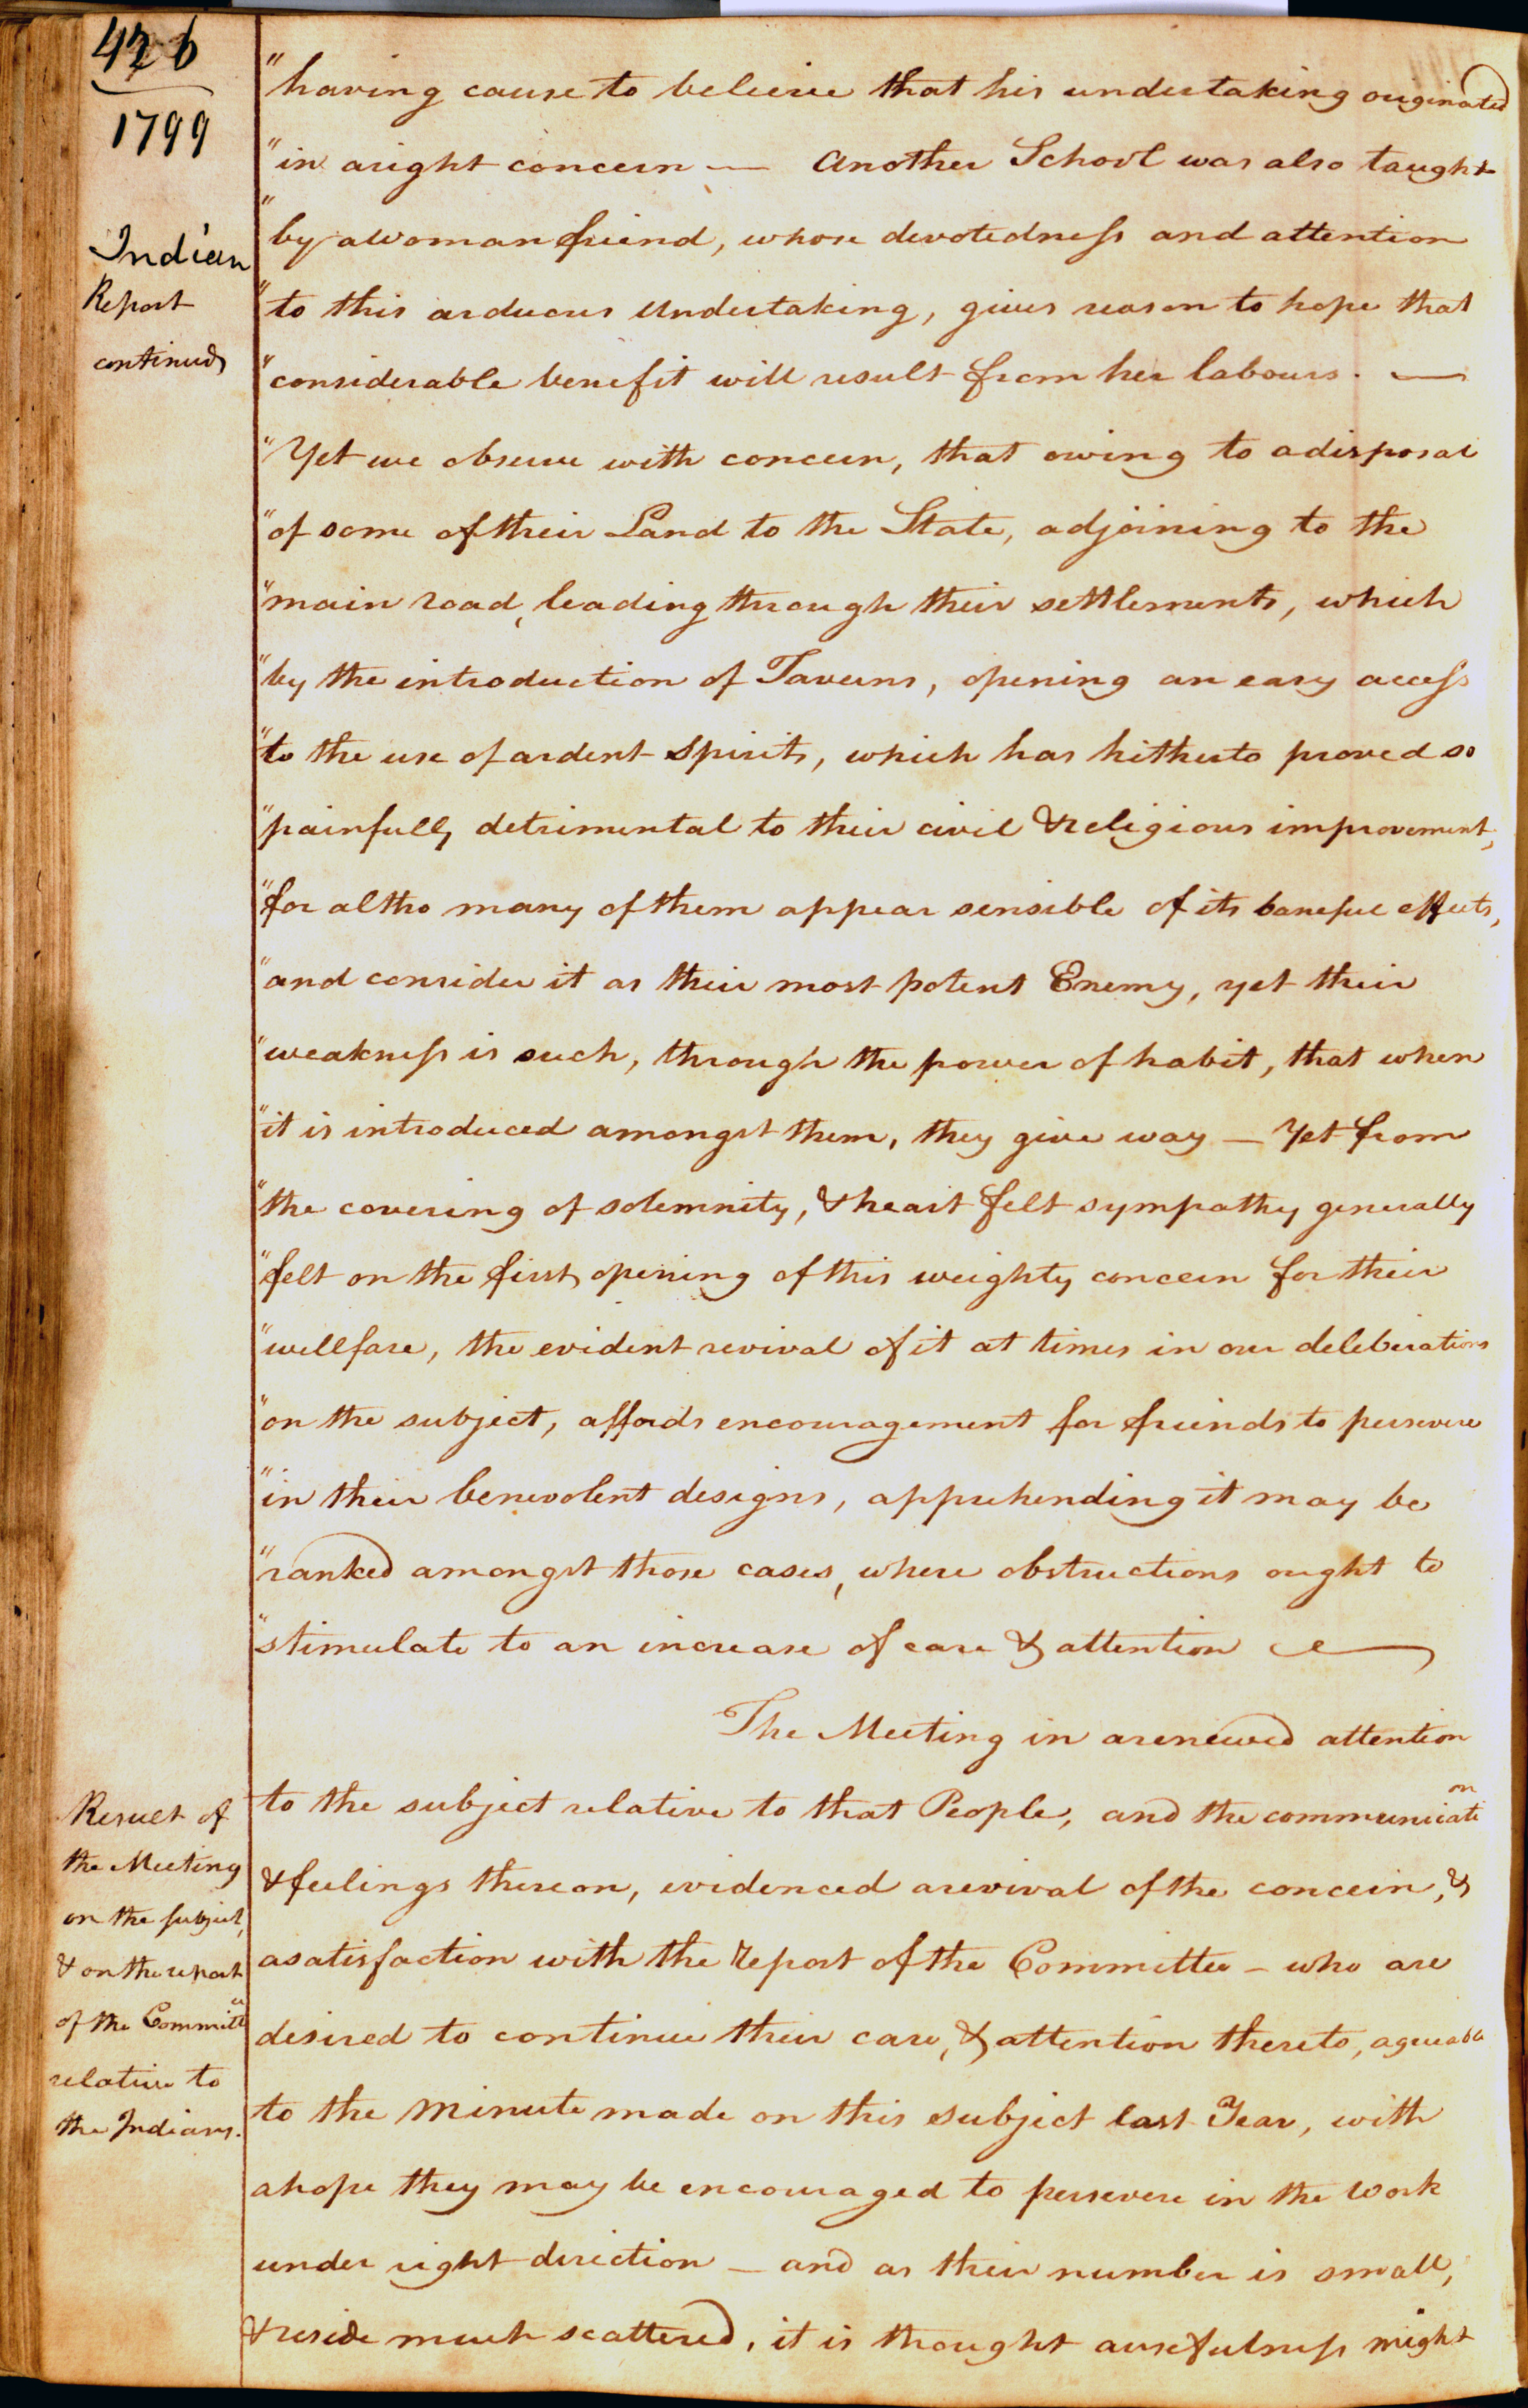 426
1799
Indian
Report
continued
"having cause to believe that his undertaking originated
"in aright concern — Another School was also taught
"by a Woman friend, whose devotedness and attention
"to this arduous Undertaking, gives reason to hope that
"considerable benefit will result from her labours. —
"Yet we observe with concern, that owing to a disposal
"of some of their Land to the State, adjoining to the
"main road, leading through their settlements, which
"by the introduction of Taverns, opening an easy access
"to the use of ardent Spirits, which has hitherto proved so
"painfully detrimental to their civil & religious improvement,
"for altho many of them appear sensible of its baneful effects,
"and consider it as their most potent Enemy, yet their
"weakness is such, through the power of habit, that when
"it is introduced amongst them, they give way — Yet from
"the covering of solemnity, & heart felt sympathy generally
"felt on the first opening of this weighty concern for their
"wellfare, the evident revival of it at times in our deleberations
"on the subject, affords encouragement for friends to persevere
"in their benevolent designs, apprehending it may be
"ranked amongst those cases, where obstructions ought to
"stimulate to an increase of care & attention —
The Meeting in a renewed attention
to the subject relative to that People, and the communication
& feelings thereon, evidenced a revival of the concern, &
a satisfaction with the report of the Committee – who are
desired to continue their care, & attention thereto, agreeable
to the Minute made on this subject last Year, with
a hope they may be encouraged to persevere in the Work
under right direction — and as their number is small,
& reside much scattered, it is thought a usefulness might
Result of
the Meeting
on the subject,
& on the report
of the Committee
relative to
the Indians.